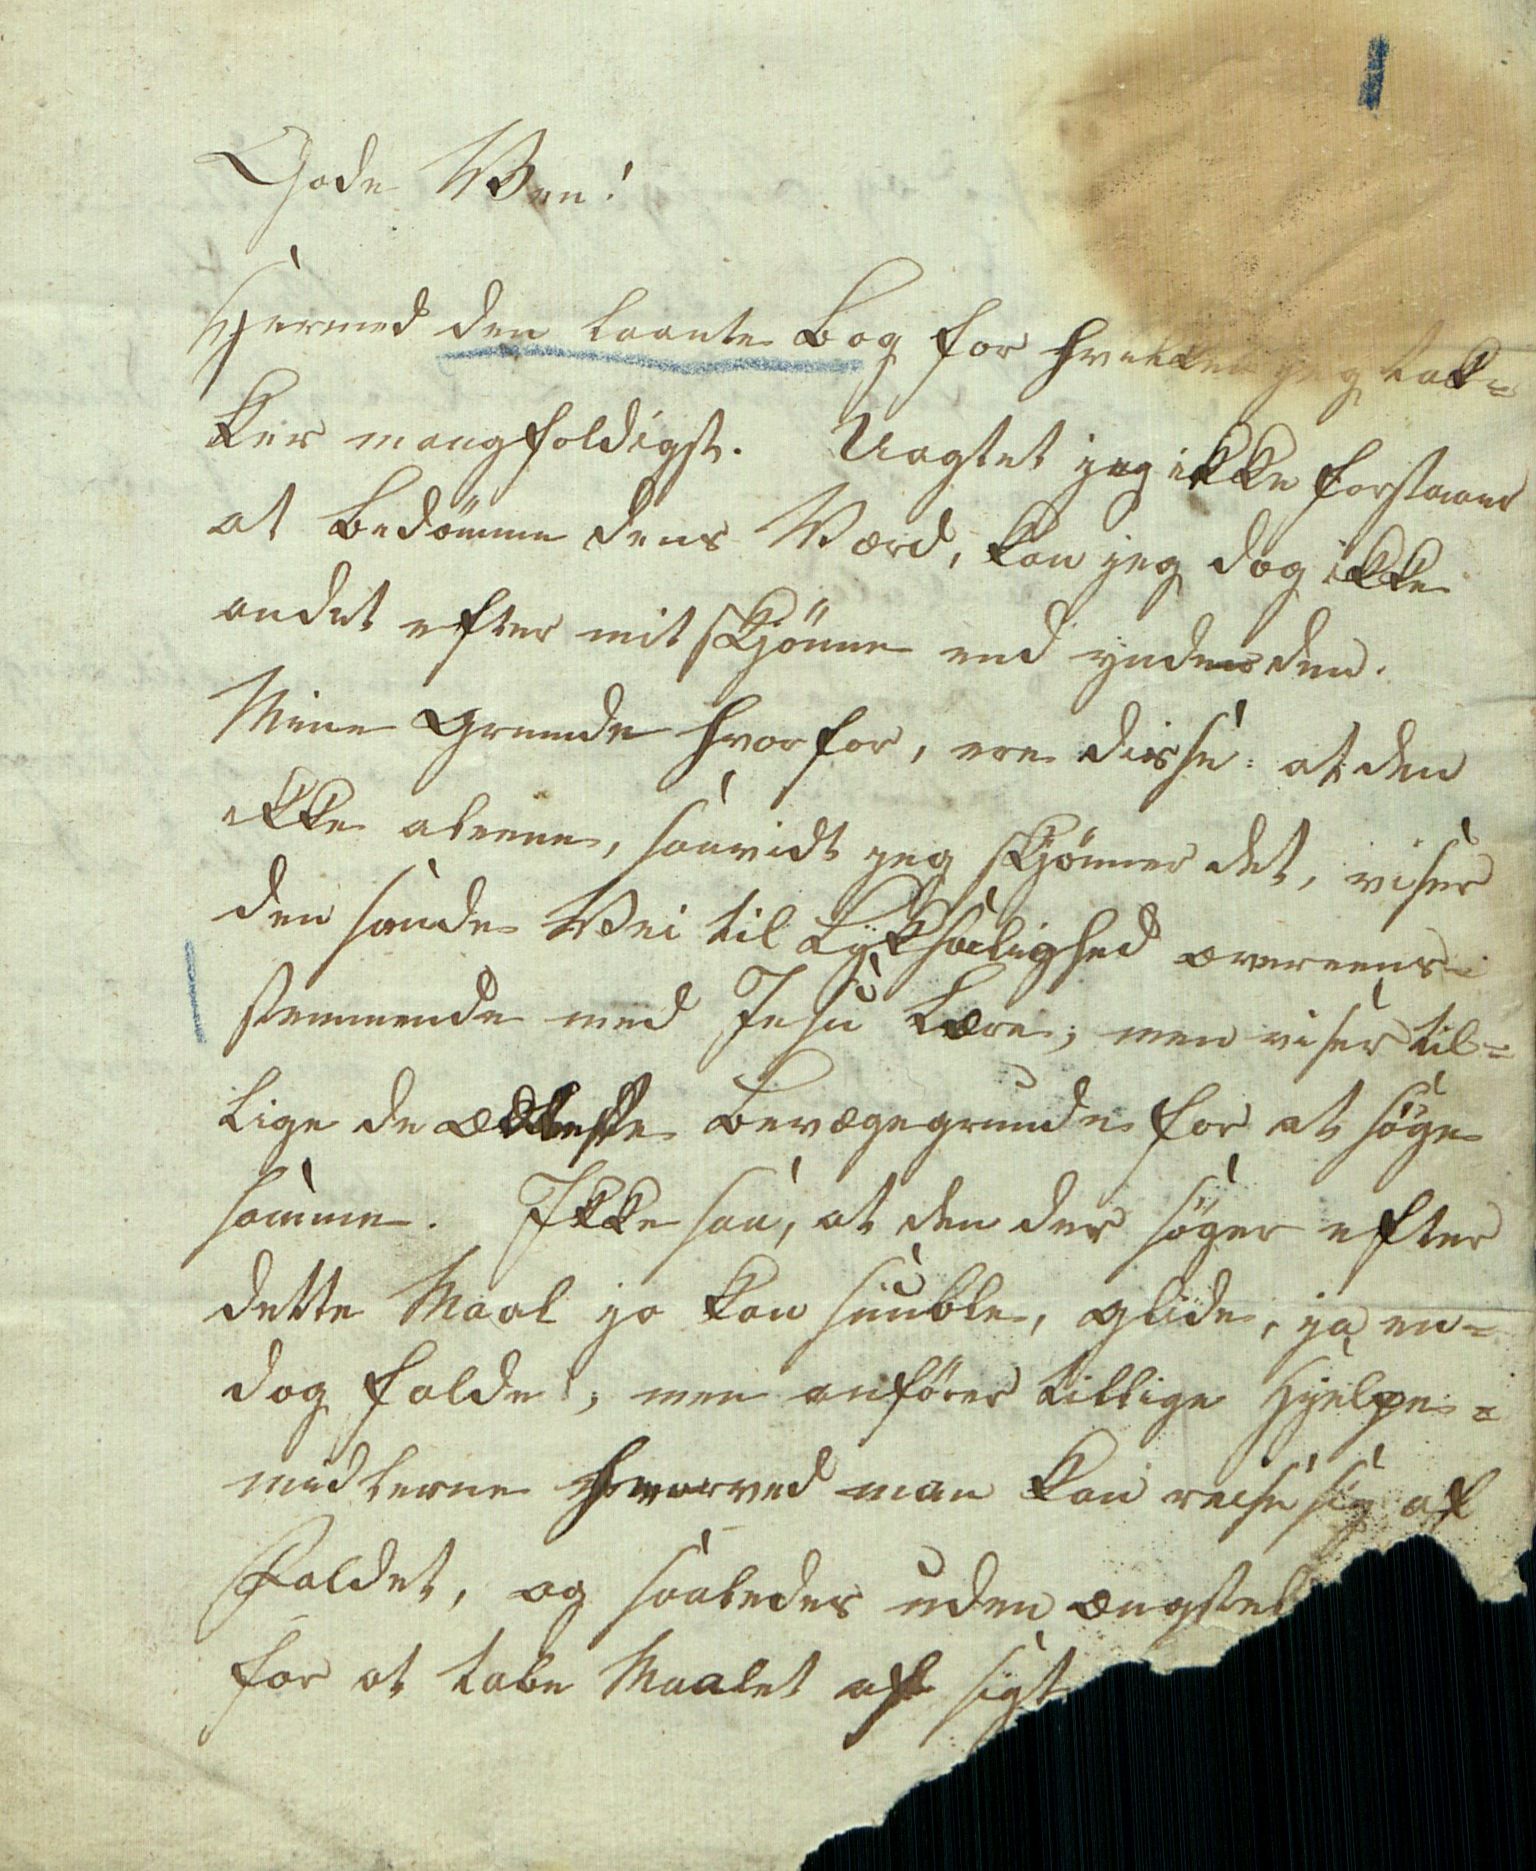 Gode Ven!
Hermed den laante Bog for hvilken jeg tak=
ker mangfoldigst. Uagtet jeg ikke forstaaer
at bedömme dens Værd, kan jeg dog ikke
andet efter mit Skjönne end ynde den.
Mine Grunde hvorfor, ere disse: at den
ikke aleene, saavidt jeg skjönner det, viser
den sande Vei til Lyksalighed overeens=
stemmende med Jesu Lære; men viser til=
lige de ædleste Bevægegrunde for at söge
samme. Ikke saa, at den der söger efter
dette Maal jo kan snuble, glide, ja en=
dog falde; men anförer tillige Hjelpe=
midlerne hvorved man kan reise sig af
Faldet, og saaledes uden ængstel
for at tabe Maalet af Sigt